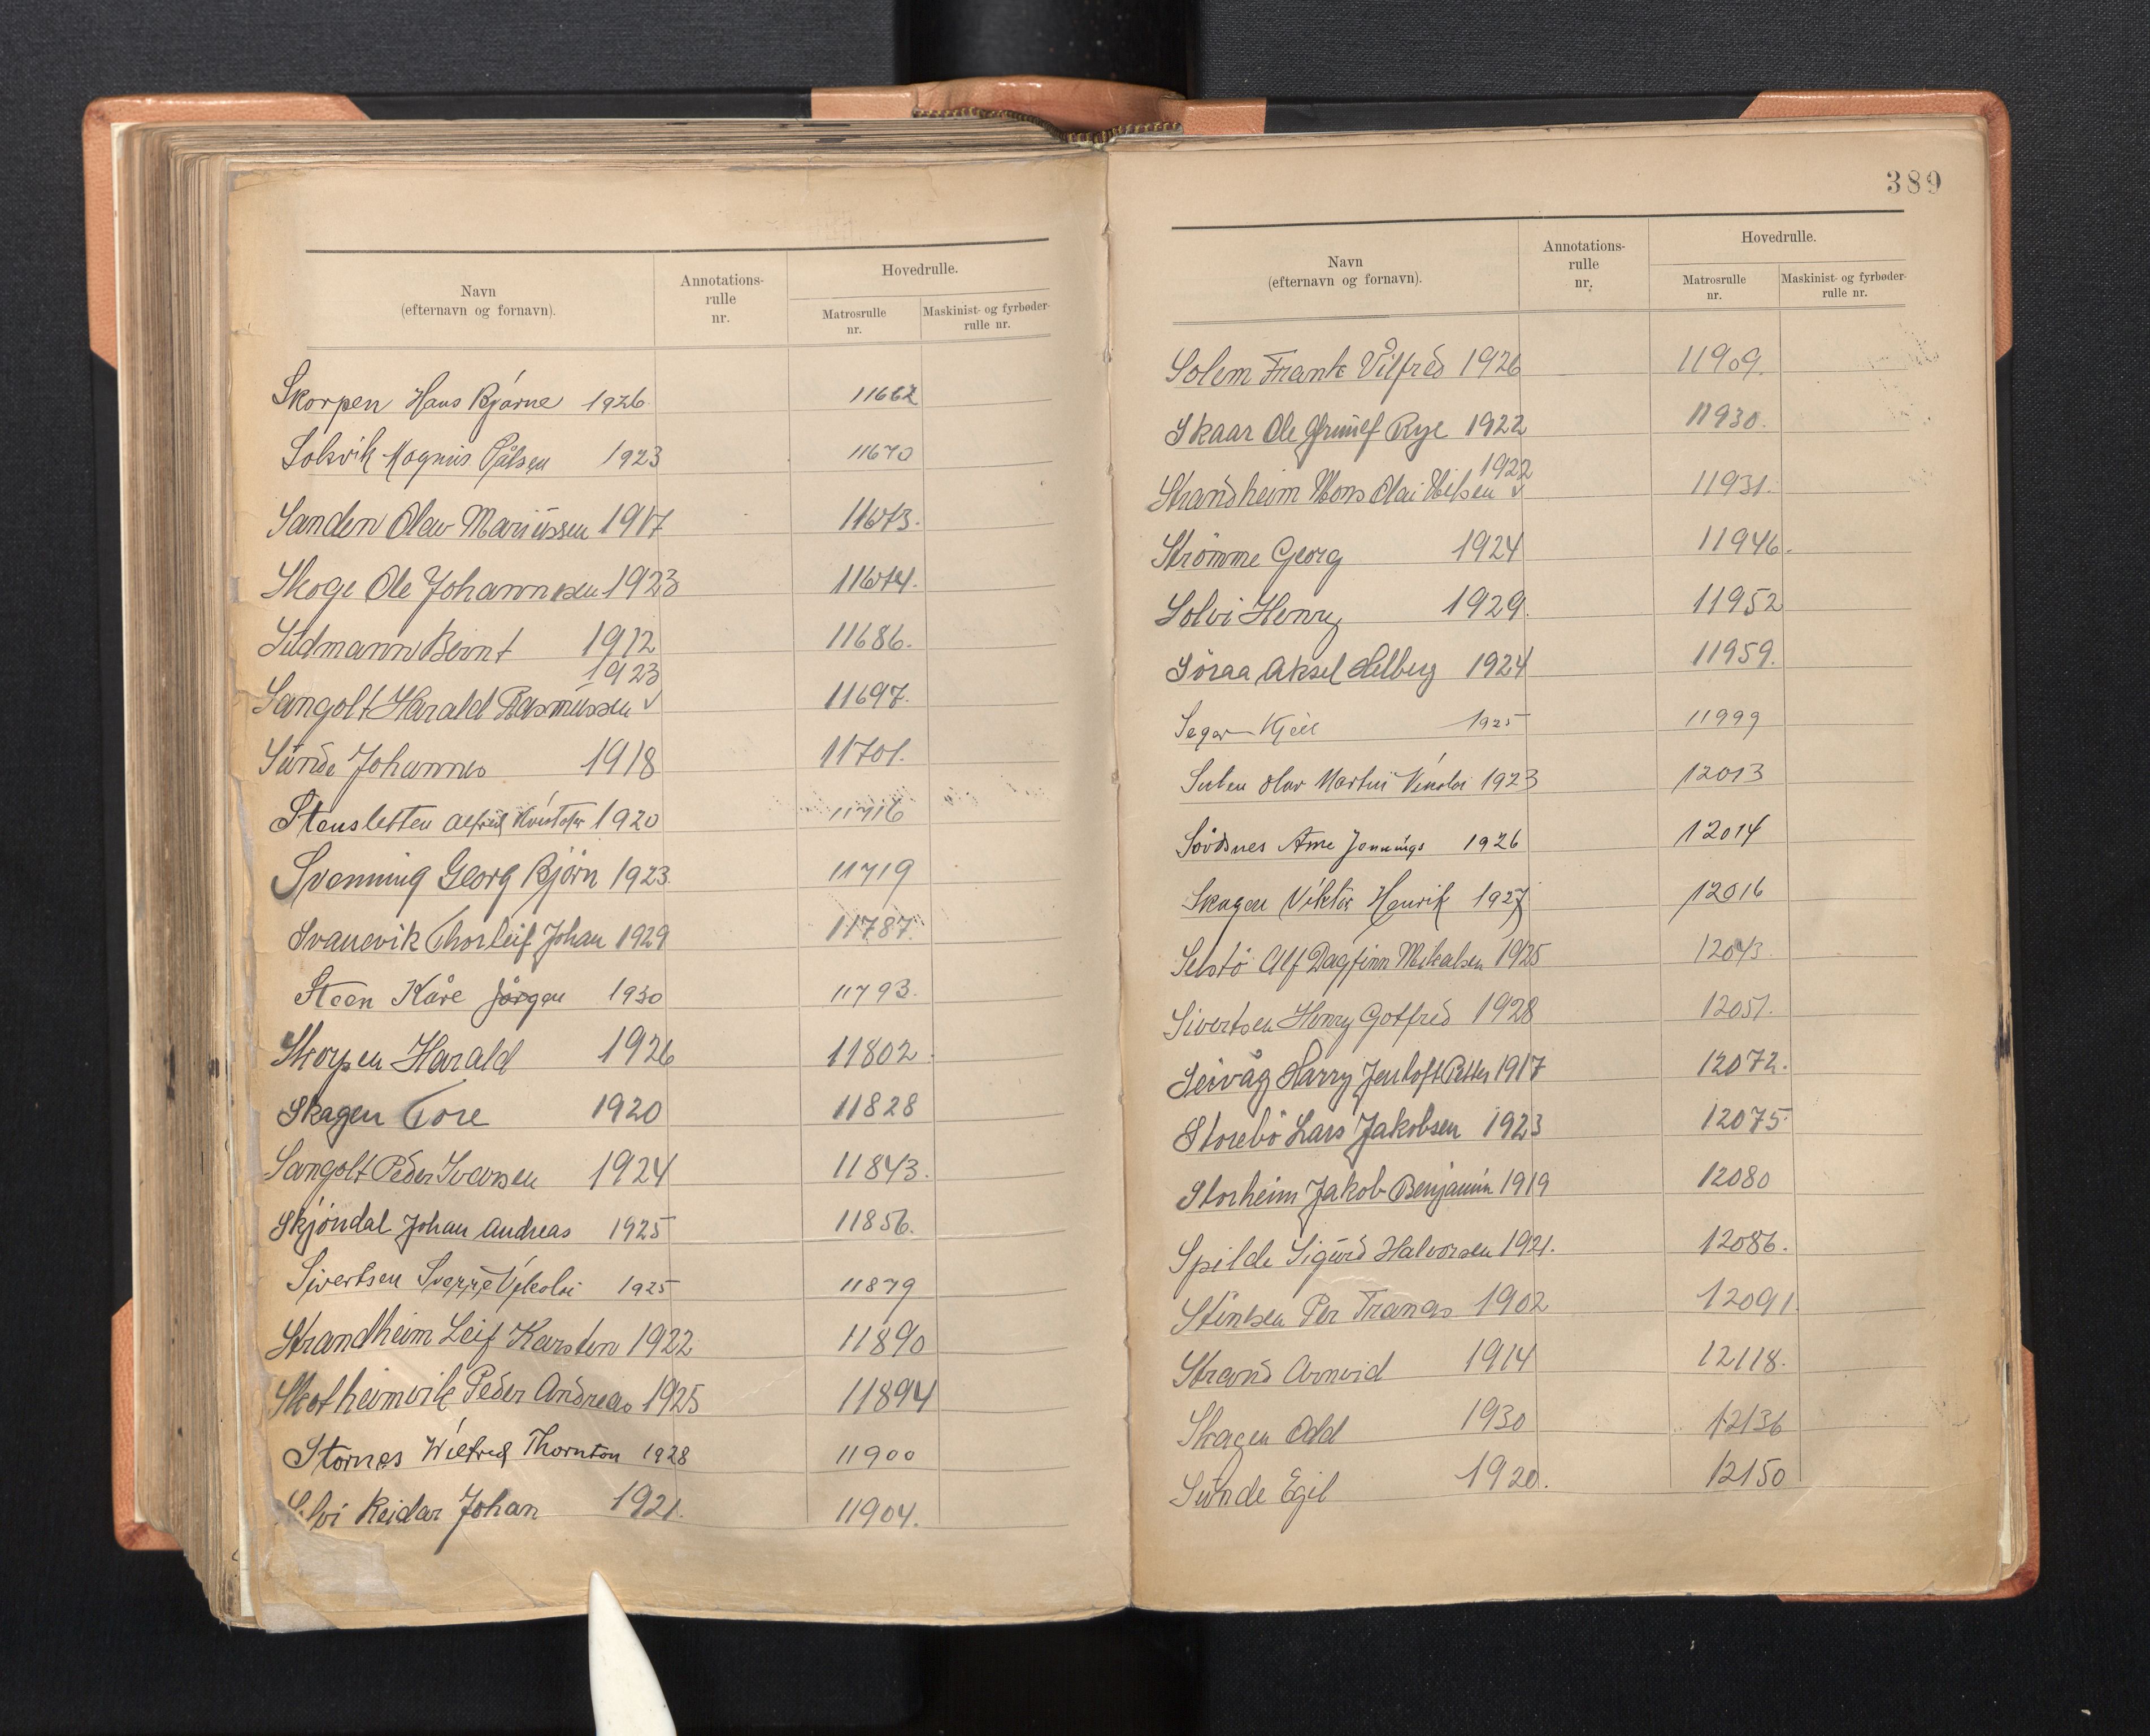 Navn
(efternavn og fornavn).
Annotations-
rulle
nr.
Hovedrulle.
Matrosrulle
nr.
Maskinist- og fyrbøder-
rulle nr.
Skorpen Hans Bjarne 1926 11662
Solsvik Magnus Pålsen 1923 11670
Sanden Olav Mariussen 1917 11673.
Skoge Ole Johannesen 1923 11674.
Sildmann Bernt 1912 11686.
1923
Sangolt Harald Rasmussen v 11697.
Sunde Johannes 1918 11701.
Stensletten Alfred 1920 11716
Svenning Georg Bjørn 1923. 11719
Svanevik Thorleif Johan 1929 11787.
Steen Kåre Jörgen 1930 11793.
Skorpen Harald 1926 11802.
Skagen Tore 1920 11828
Sangolt Peder Iversen 1924 11843.
Skjöndal Johan Andreas 1925 11856.
Sivertsen Sverre 1925 11879
Strandheim Leif Karsten 1922 11890
Skotheimvik Peder Andreas 1925 11894
Stornes Wilfred Thornton 1928 11900
Reidar Johan 1921. 11904.
389
Navn
(efternavn og fornavn).
Annotations-
rulle
nr.
Hovedrulle.
Matrosrulle
nr.
Maskinist- og fyrbøder-
rulle nr.
Solem Frank Vilfred 1926 11909.
Skaar Ole Rye 1922 11930.
1922
Strandheim Mons Olai Nilsen v 11931.
Strömme Georg 1924 11946.
Solvi Henry 1929. 11952
Söraa Aksel Helberg 1924 11959.
Kjell 1925 11999
Olav Martin 1923 12013
Sövdsnes Arne Jennings 1926 12014
Skagen Viktor Henrik 1927 12016
Selstö Alf Dagfinn Mikalsen 1925 12043.
Sivertsen Henry Gotfred 1928 12051.
Seivåg Harry Jentoft Petter 1917 12072.
Storebö Lars Jakobsen 1923 12075.
Storheim Jakob Benjamin 1919 12080
Spilde Sigurd Halvorsen 1921. 12086.
Per 1902 12091.
Strand Arnvid 1914 12118.
Skagen Odd 1930 12136
Sunde Egil 1920. 12150